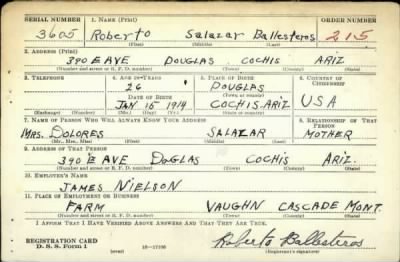 SERIAL NUMBER 1. NAME (Print) ORDER NUMBER
3605 Roberto Salazar Ballesteros 215
(First) (Middle) (Last)
2. ADDRESS (Print)
390 E AVE DOUGLAS COCHIS ARIZ
(Number and street or R. F. D. number) (Town) (County) (State)
3. TELEPHONE 4. AGE IN YEARS 5. PLACE OF BIRTH 6. COUNTRY OF CITIZENSHIP
26 DOUGLAS
DATE OF BIRTH (Town or county)
JAN 15 1914 COCHIS. ARIZ USA
(Exchange) (Number) (Mo.) (Day) (Yr.) (State or country)
7. NAME OF PERSON WHO WILL ALWAYS KNOW YOUR ADDRESS 8. RELATIONSHIP OF THAT PERSON
MRS. DOLORES SALAZAR MOTHER
(Mr., Mrs., Miss) (First) (Middle) (Last)
9. ADDRESS OF THAT PERSON
390 E AVE DOGLAS COCHIS ARIZ.
(Number and street or R. F. D. number) (Town) (County) (State)
10. EMPLOYER'S NAME
JAMES NIELSON
11. PLACE OF EMPLOYMENT OR BUSINESS
FARM VAUGHN CASCADE MONT.
(Number and street or R. F. D. number) (Town) (County) (State)
I AFFIRM THAT I HAVE VERIFIED ABOVE ANSWERS AND THAT THEY ARE TRUE.
REGISTRATION CARD
D. S. S. Form 1 (over) 16—17105 Roberto Ballesteros
(Registrant's signature)